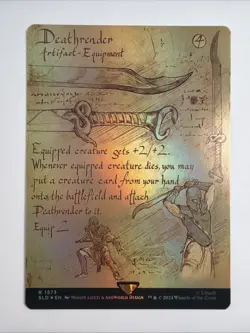 Deathrender
4
Artifact-Equipment
Equipped creature gets +2/+2.
Whenever equipped creature dies, you may
put a creature card from your hand
onto the battlefield and attach
Deathrender to it.
Equip 2
R 1573
SLD ★ EN
™ & © 2024 Wizards of the Coast